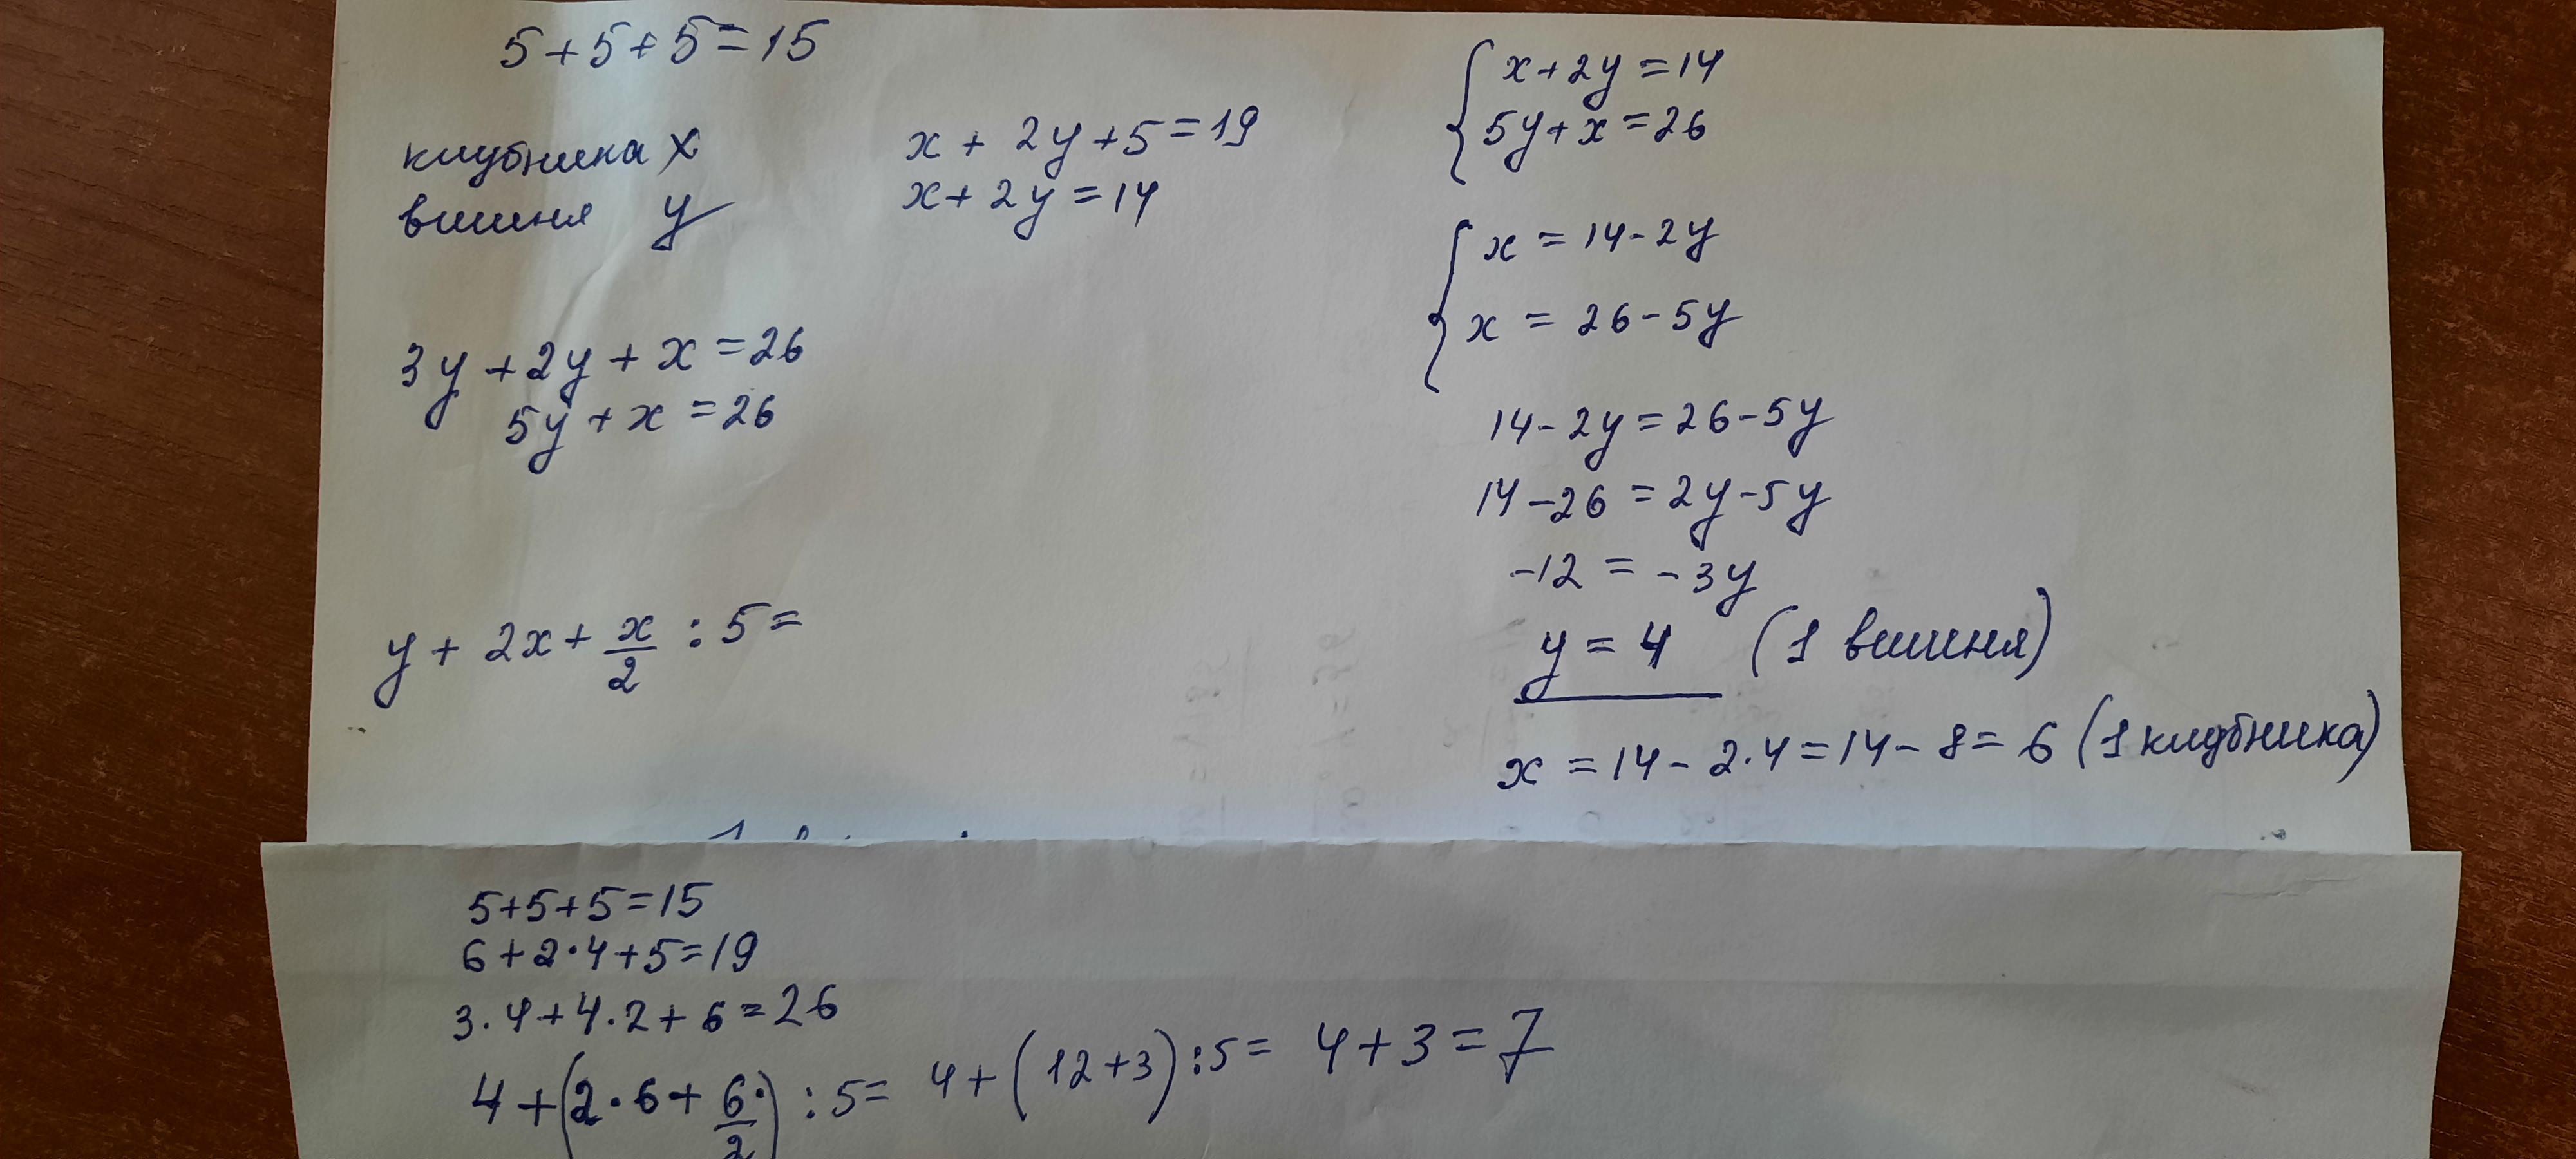 5+5+5=15
клубника x
вишня y
x + 2y + 5 = 19
x + 2y = 14
3y + 2y + x = 26
5y + x = 26
y + 2x + x/2 : 5 =
{ x + 2y = 14
5y + x = 26
{ x = 14 - 2y
x = 26 - 5y
14 - 2y = 26 - 5y
14 - 26 = 2y - 5y
-12 = -3y
y = 4 (1 вишня)
x = 14 - 2·4 = 14 - 8 = 6 (1 клубника)
5+5+5=15
6+2·4+5=19
3·4+4·2+6=26
4+(2·6+6/2):5= 4+(12+3):5= 4+3=7